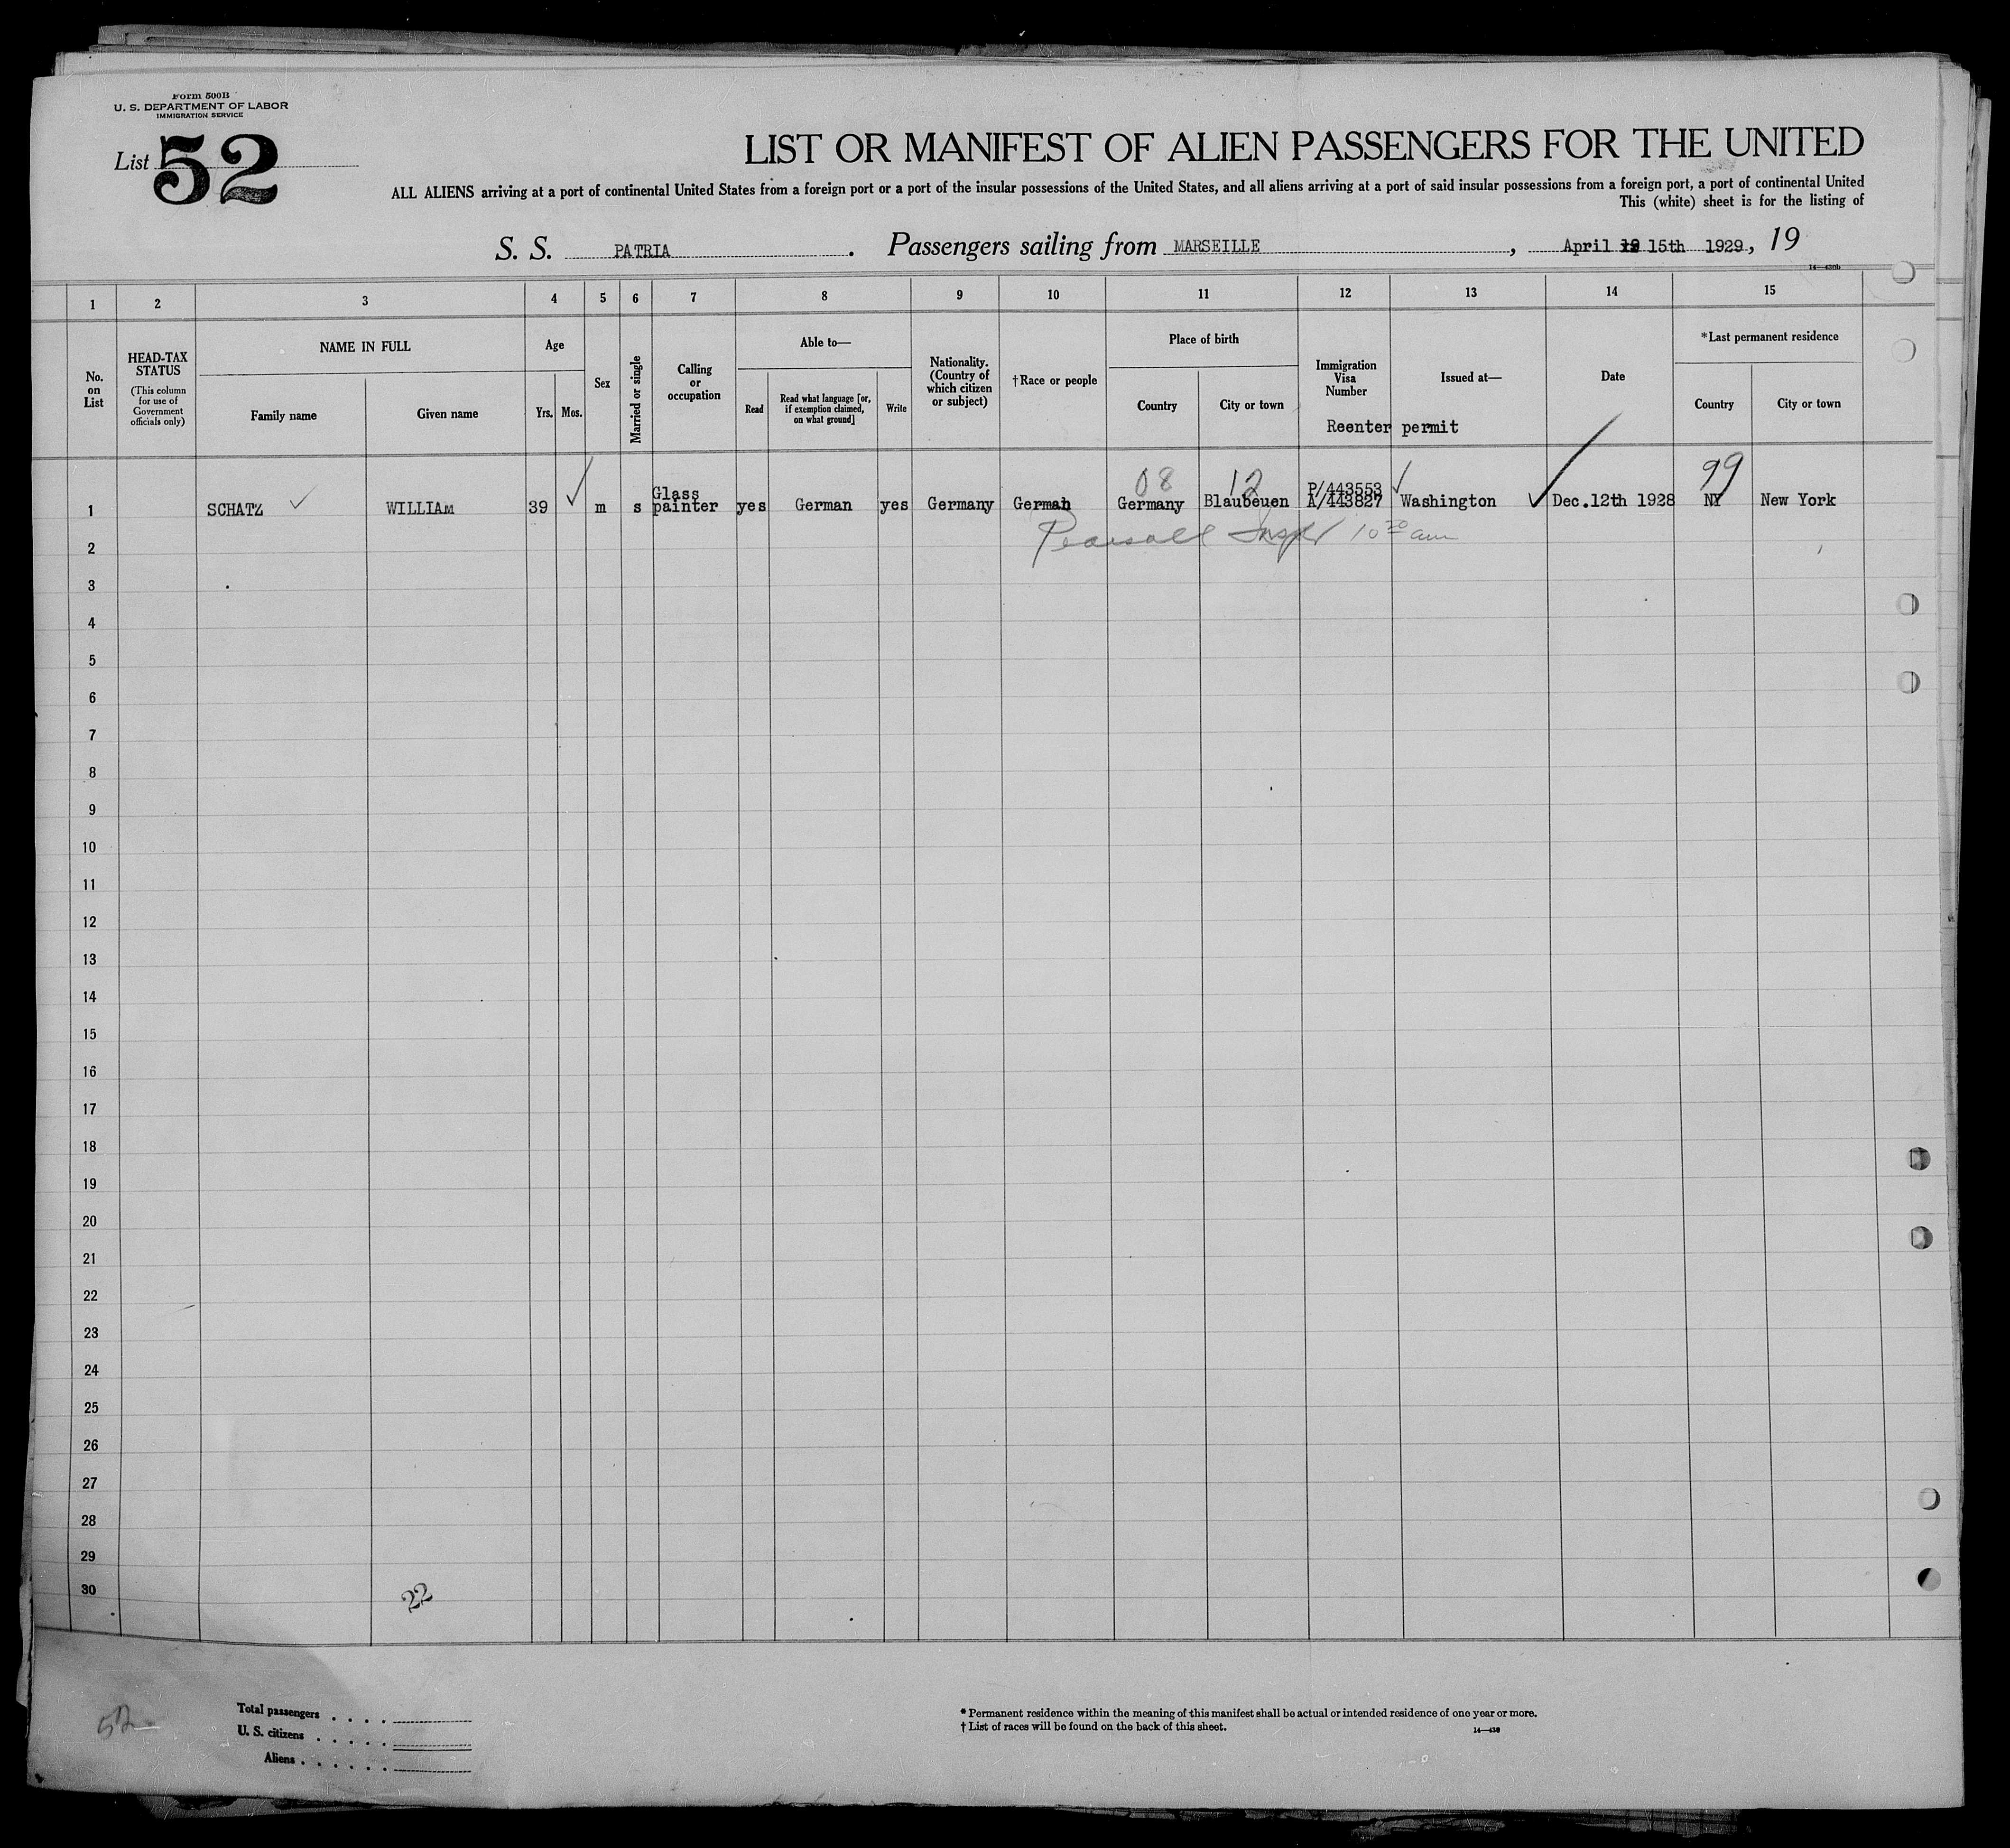 Form 500B
U. S. DEPARTMENT OF LABOR
IMMIGRATION SERVICE
List 52
LIST OR MANIFEST OF ALIEN PASSENGERS FOR THE UNITED
ALL ALIENS arriving at a port of continental United States from a foreign port or a port of the insular possessions of the United States, and all aliens arriving at a port of said insular possessions from a foreign port, a port of continental United
This (white) sheet is for the listing of
S. S. PATRIA. Passengers sailing from MARSEILLE, April 15th 1929, 19
14—430b
1 2 3 4 5 6 7 8 9 10 11 12 13 14 15
No. on List
HEAD-TAX STATUS
(This column for use of Government officials only)
NAME IN FULL
Family name Given name
Age
Yrs. Mos.
Sex
Married or single
Calling or occupation
Able to—
Read
Read what language [or, if exemption claimed, on what ground]
Write
Nationality. (Country of which citizen or subject)
†Race or people
Place of birth
Country City or town
Immigration Visa Number
Issued at—
Date
Reenter permit
*Last permanent residence
Country City or town
08 12 99
1 SCHATZ WILLIAM 39 m s Glass painter yes German yes Germany German Germany Blaubeuen P/443553 A/443827 Washington Dec.12th 1928 NY New York
Pearsall Inspr 10 30 am
2
3
4
5
6
7
8
9
10
11
12
13
14
15
16
17
18
19
20
21
22
23
24
25
26
27
28
29
30
22
52
Total passengers . . . .
U. S. citizens . . . . .
Aliens . . . . . .
* Permanent residence within the meaning of this manifest shall be actual or intended residence of one year or more.
† List of races will be found on the back of this sheet.
14—430